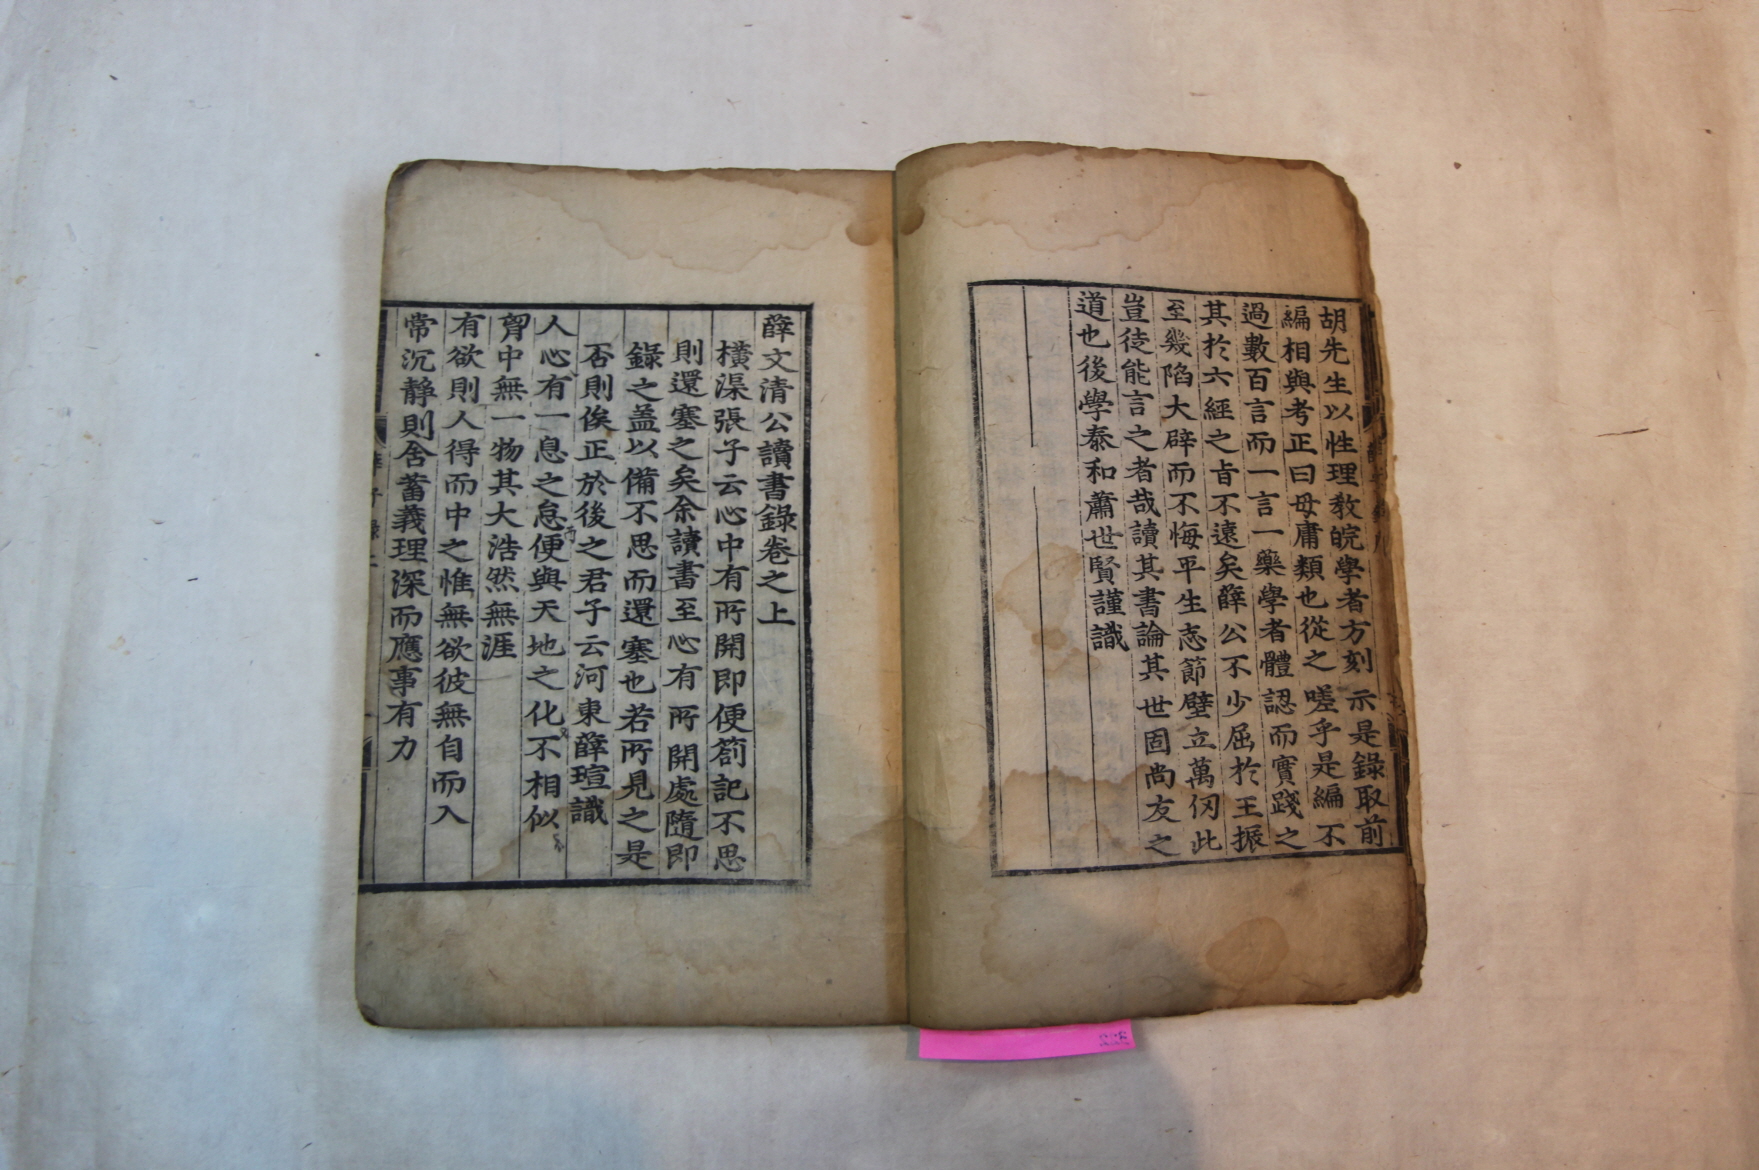 胡先生以性理敎皖學者方刻示是錄取前
編相與考正曰毋庸類也從之嗟乎是編不
過數百言而一言一藥學者體認而實踐之
其於六經之旨不遠矣薛公不少屈於王振
至幾陷大辟而不悔平生志節壁立萬仞此
豈徒能言之者哉讀其書論其世固尚友之
道也後學泰和蕭世賢謹識
薛文清公讀書錄卷之上
橫渠張子云心中有所開即便箚記不思
則還塞之矣余讀書至心有所開處隨即
錄之盖以備不思而還塞也若所見之是
否則俟正於後之君子云河東薛瑄識
人心有一息之怠便與天地之化不相似
胷中無一物其大浩然無涯
有欲則人得而中之惟無欲彼無自而入
常沉靜則含蓄義理深而應事有力